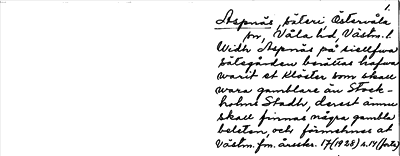 1.
Aspnäs, säteri, Östervåla
sn, Våla hd, Västm. l.
Widh Aspnäs på sielfwa
sätegården berättas hafwa
warit et Kloster som skall
wara gamblare än Stock-
holms Stadh, derest ännu
skall finnas några gambla
beleten, och förmehnes at
Västm. fm. årsskr. 17 (1928) s. 14 (forts)